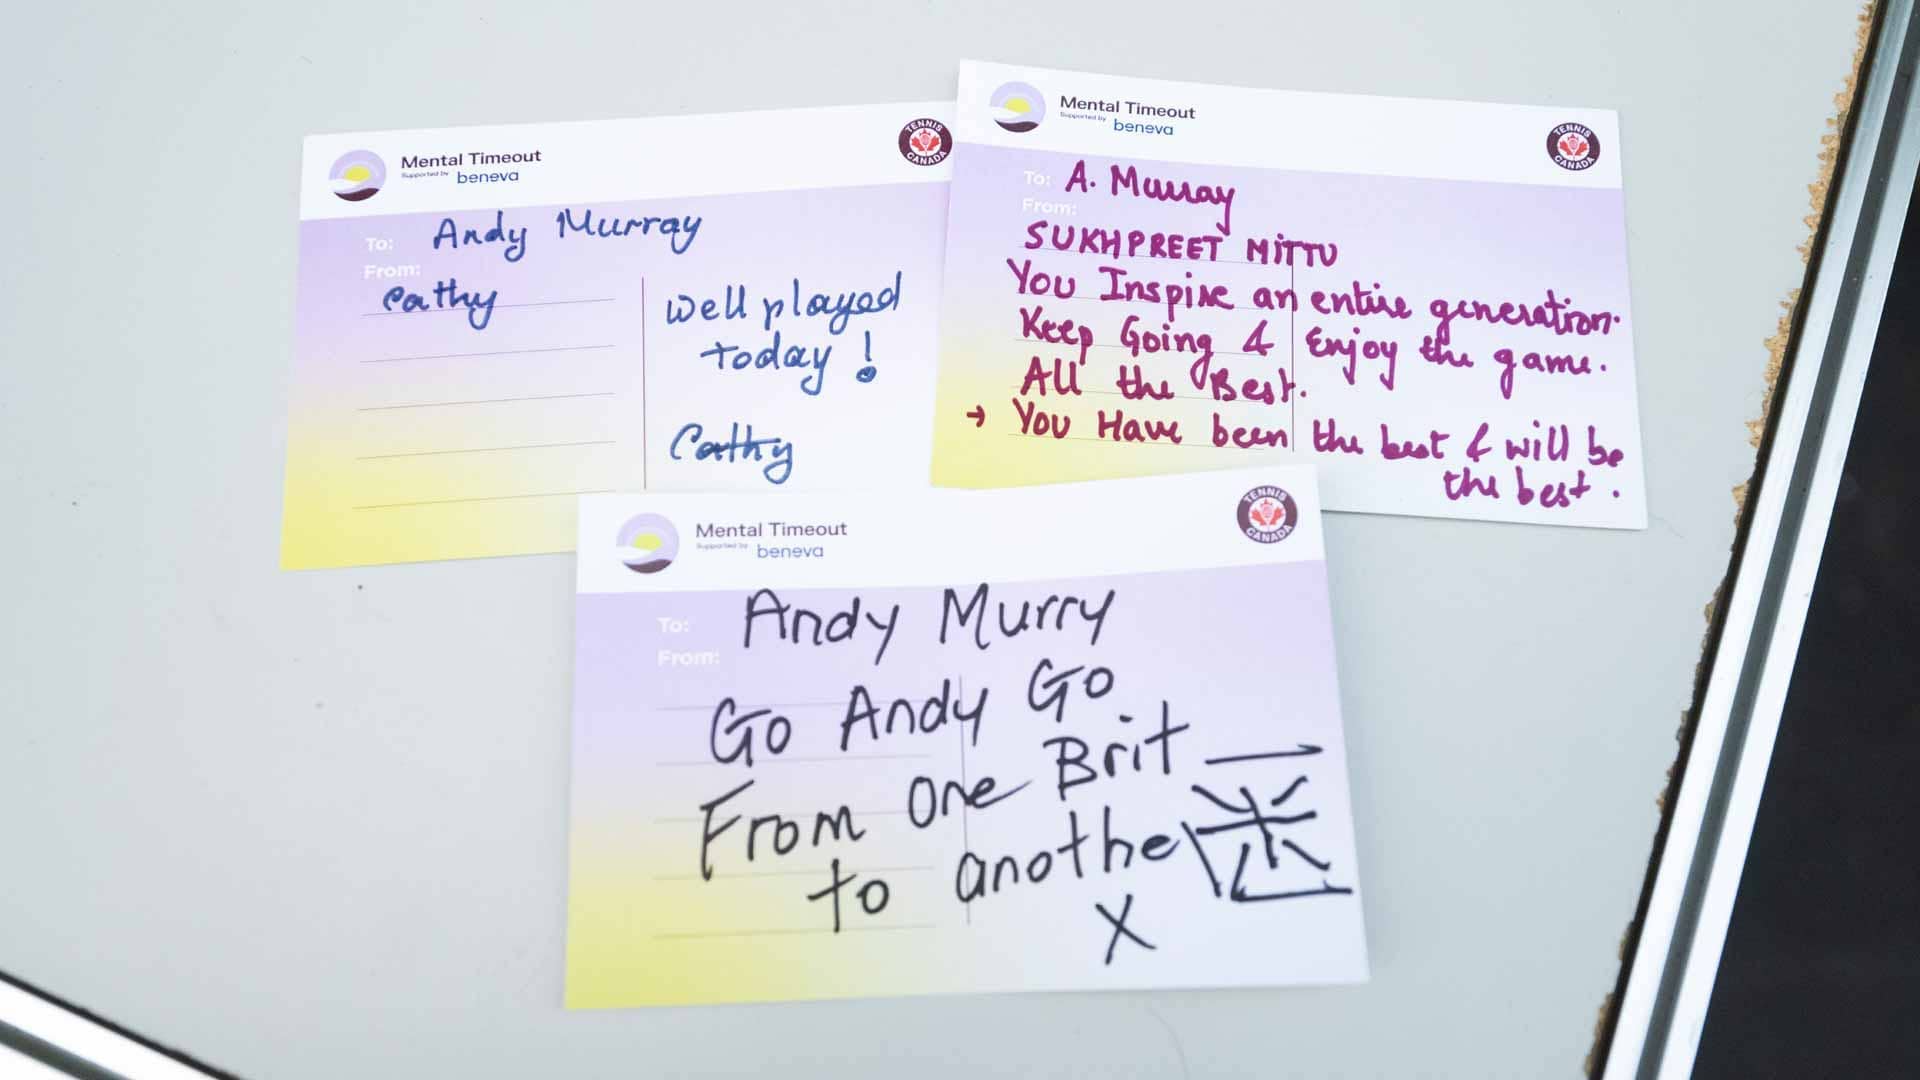 Mental Timeout
Supported by beneva
TENNIS CANADA
To: Andy Murray
From:
Cathy
Well played
today!
Cathy
Mental Timeout
Supported by beneva
TENNIS CANADA
To: A. Murray
From:
SUKHPREET MITTU
You Inspire an entire generation.
Keep Going & Enjoy the game.
All the Best.
→ You Have been the best & will be
the best.
Mental Timeout
Supported by beneva
TENNIS CANADA
To: Andy Murry
From:
Go Andy Go
From One Brit
to another
X